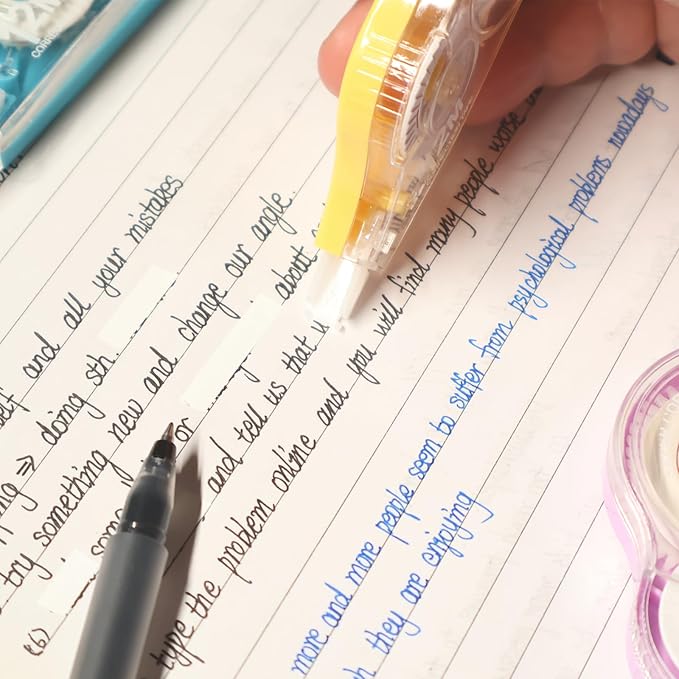 12M
self and all your mistakes
⇒ doing sth.
try something new and change our angle.
or about
(6) and tell us that
type the problem online and you will find many people worse
more and more people seem to suffer from psychological problems nowadays
they are enjoying
12M